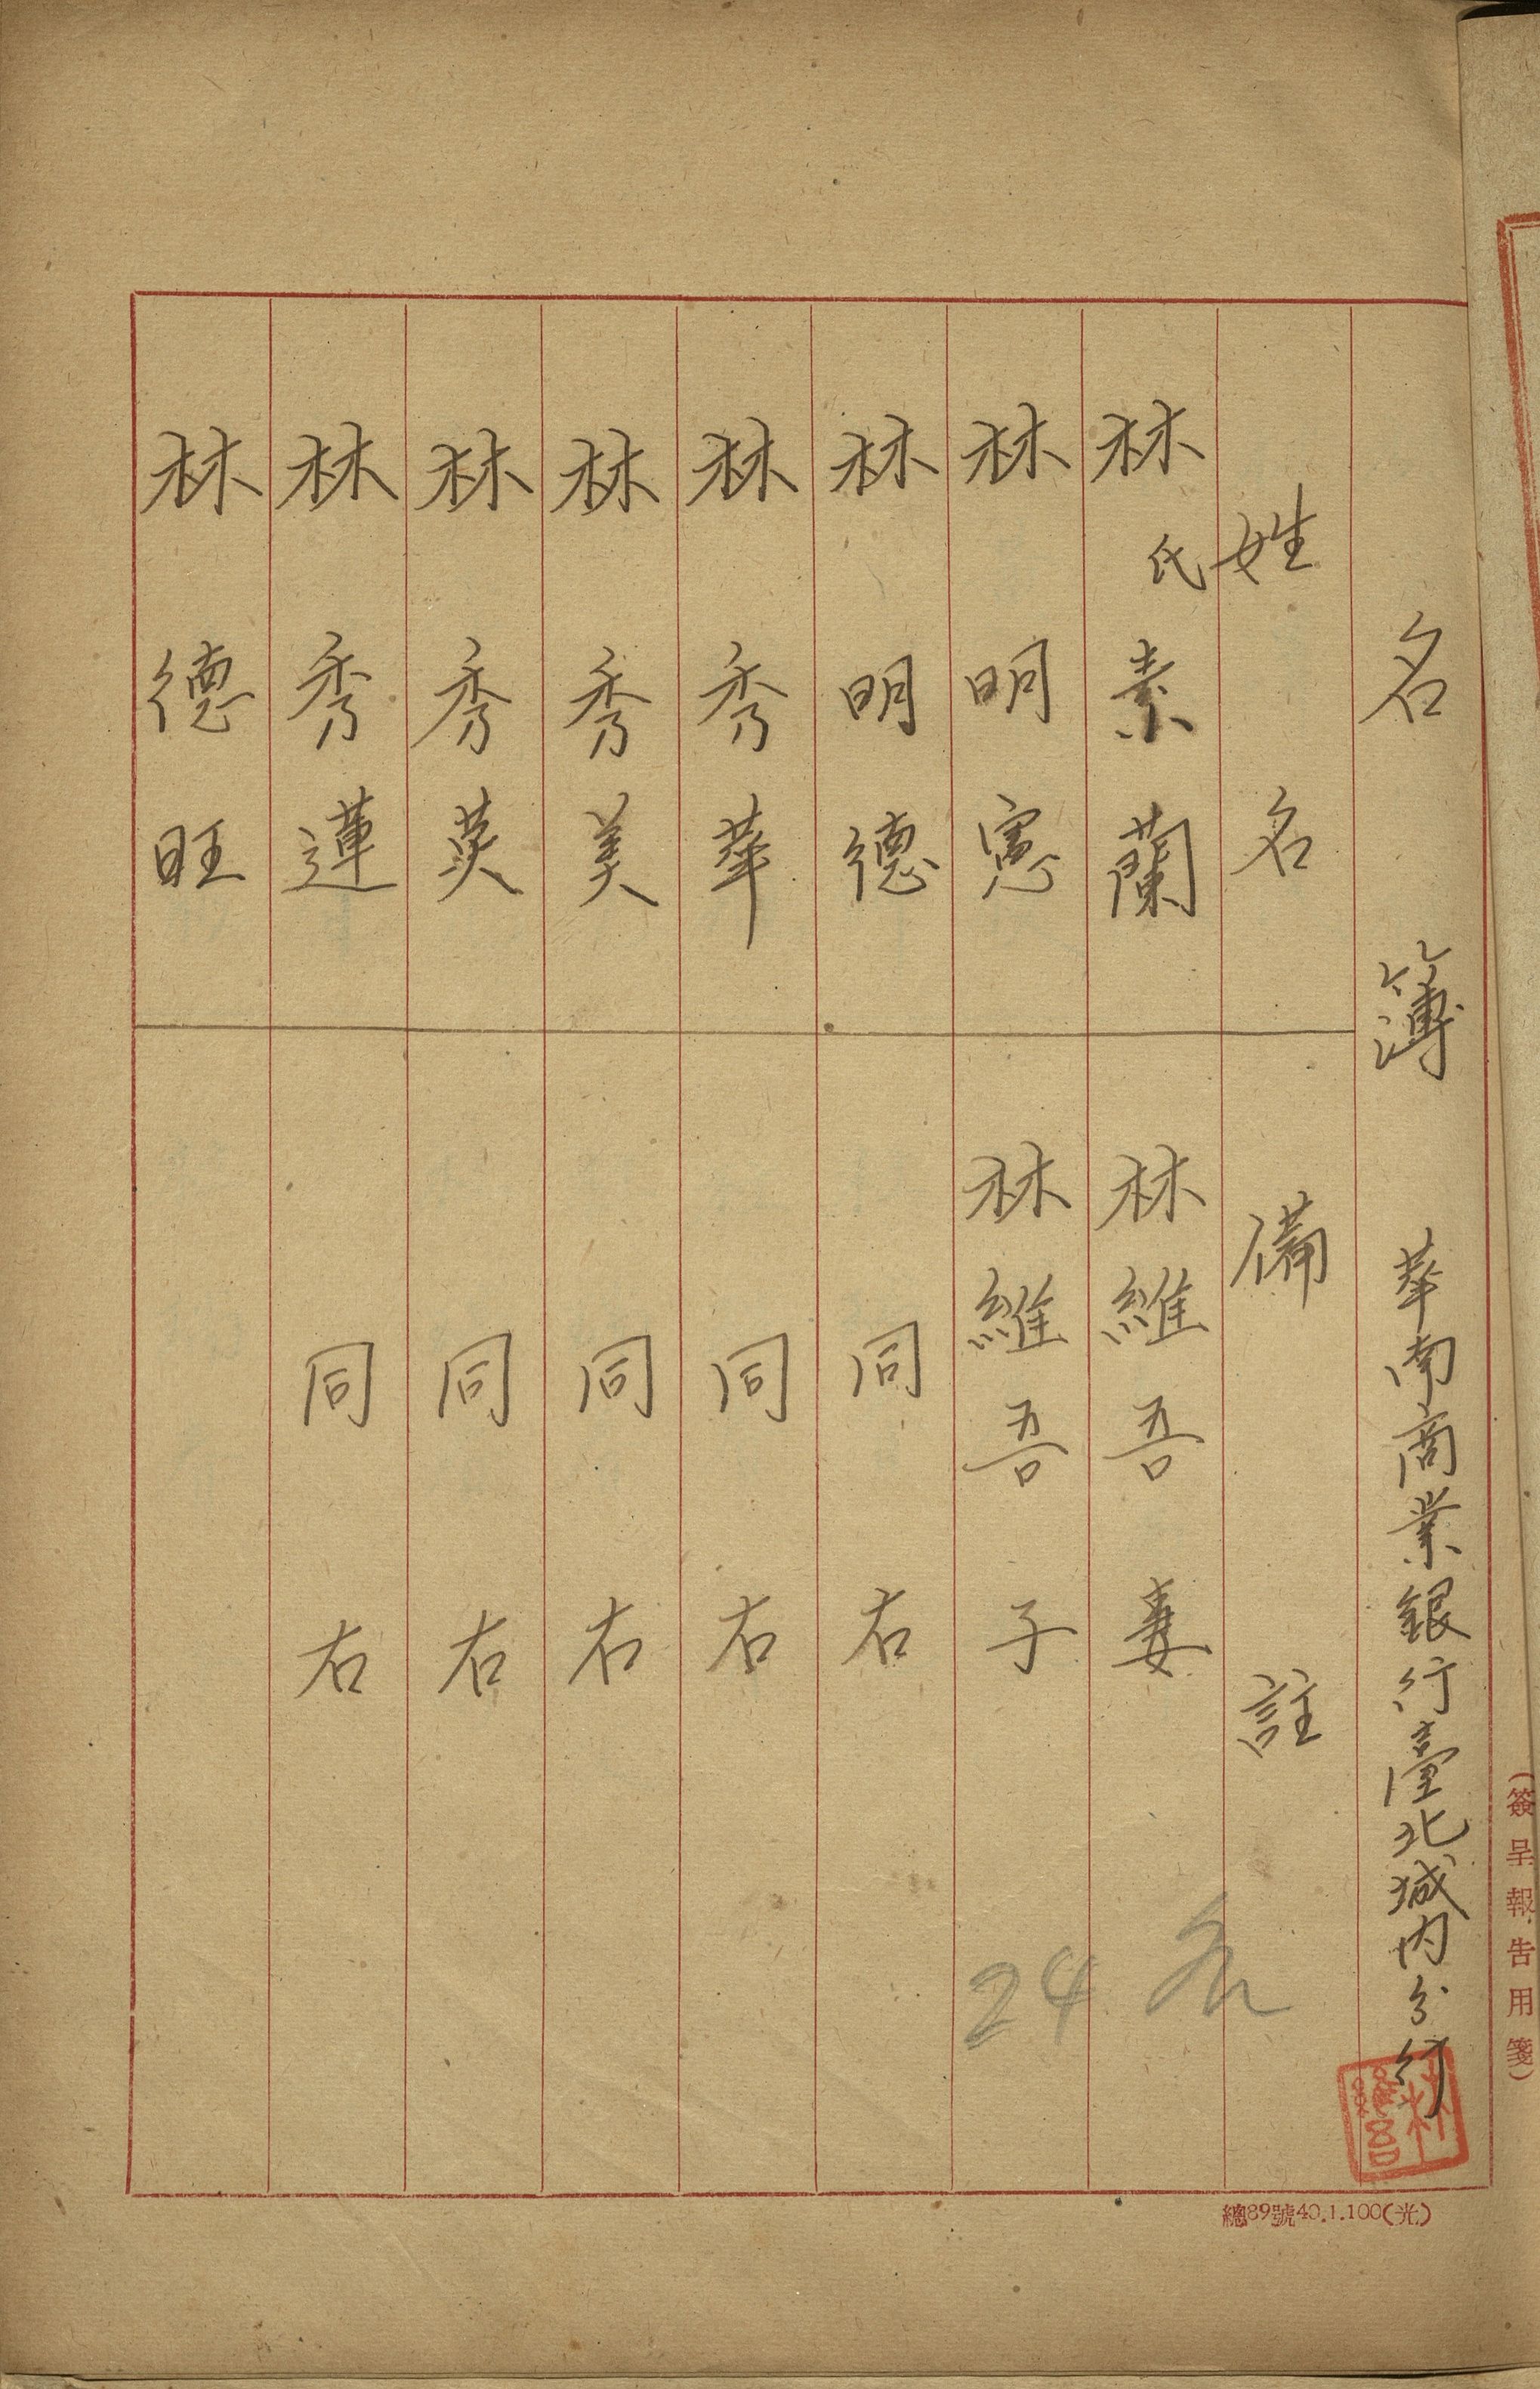 (簽呈報告用箋)
名簿 華南商業銀行臺北城内分行
林維吾
姓名 備註
林氏素蘭 林維吾妻
林明憲 林維吾子
林明德 同右
林秀華 同右
林秀美 同右
林秀英 同右
林秀蓮 同右
林德旺
24名
總89號40.1.100(光)